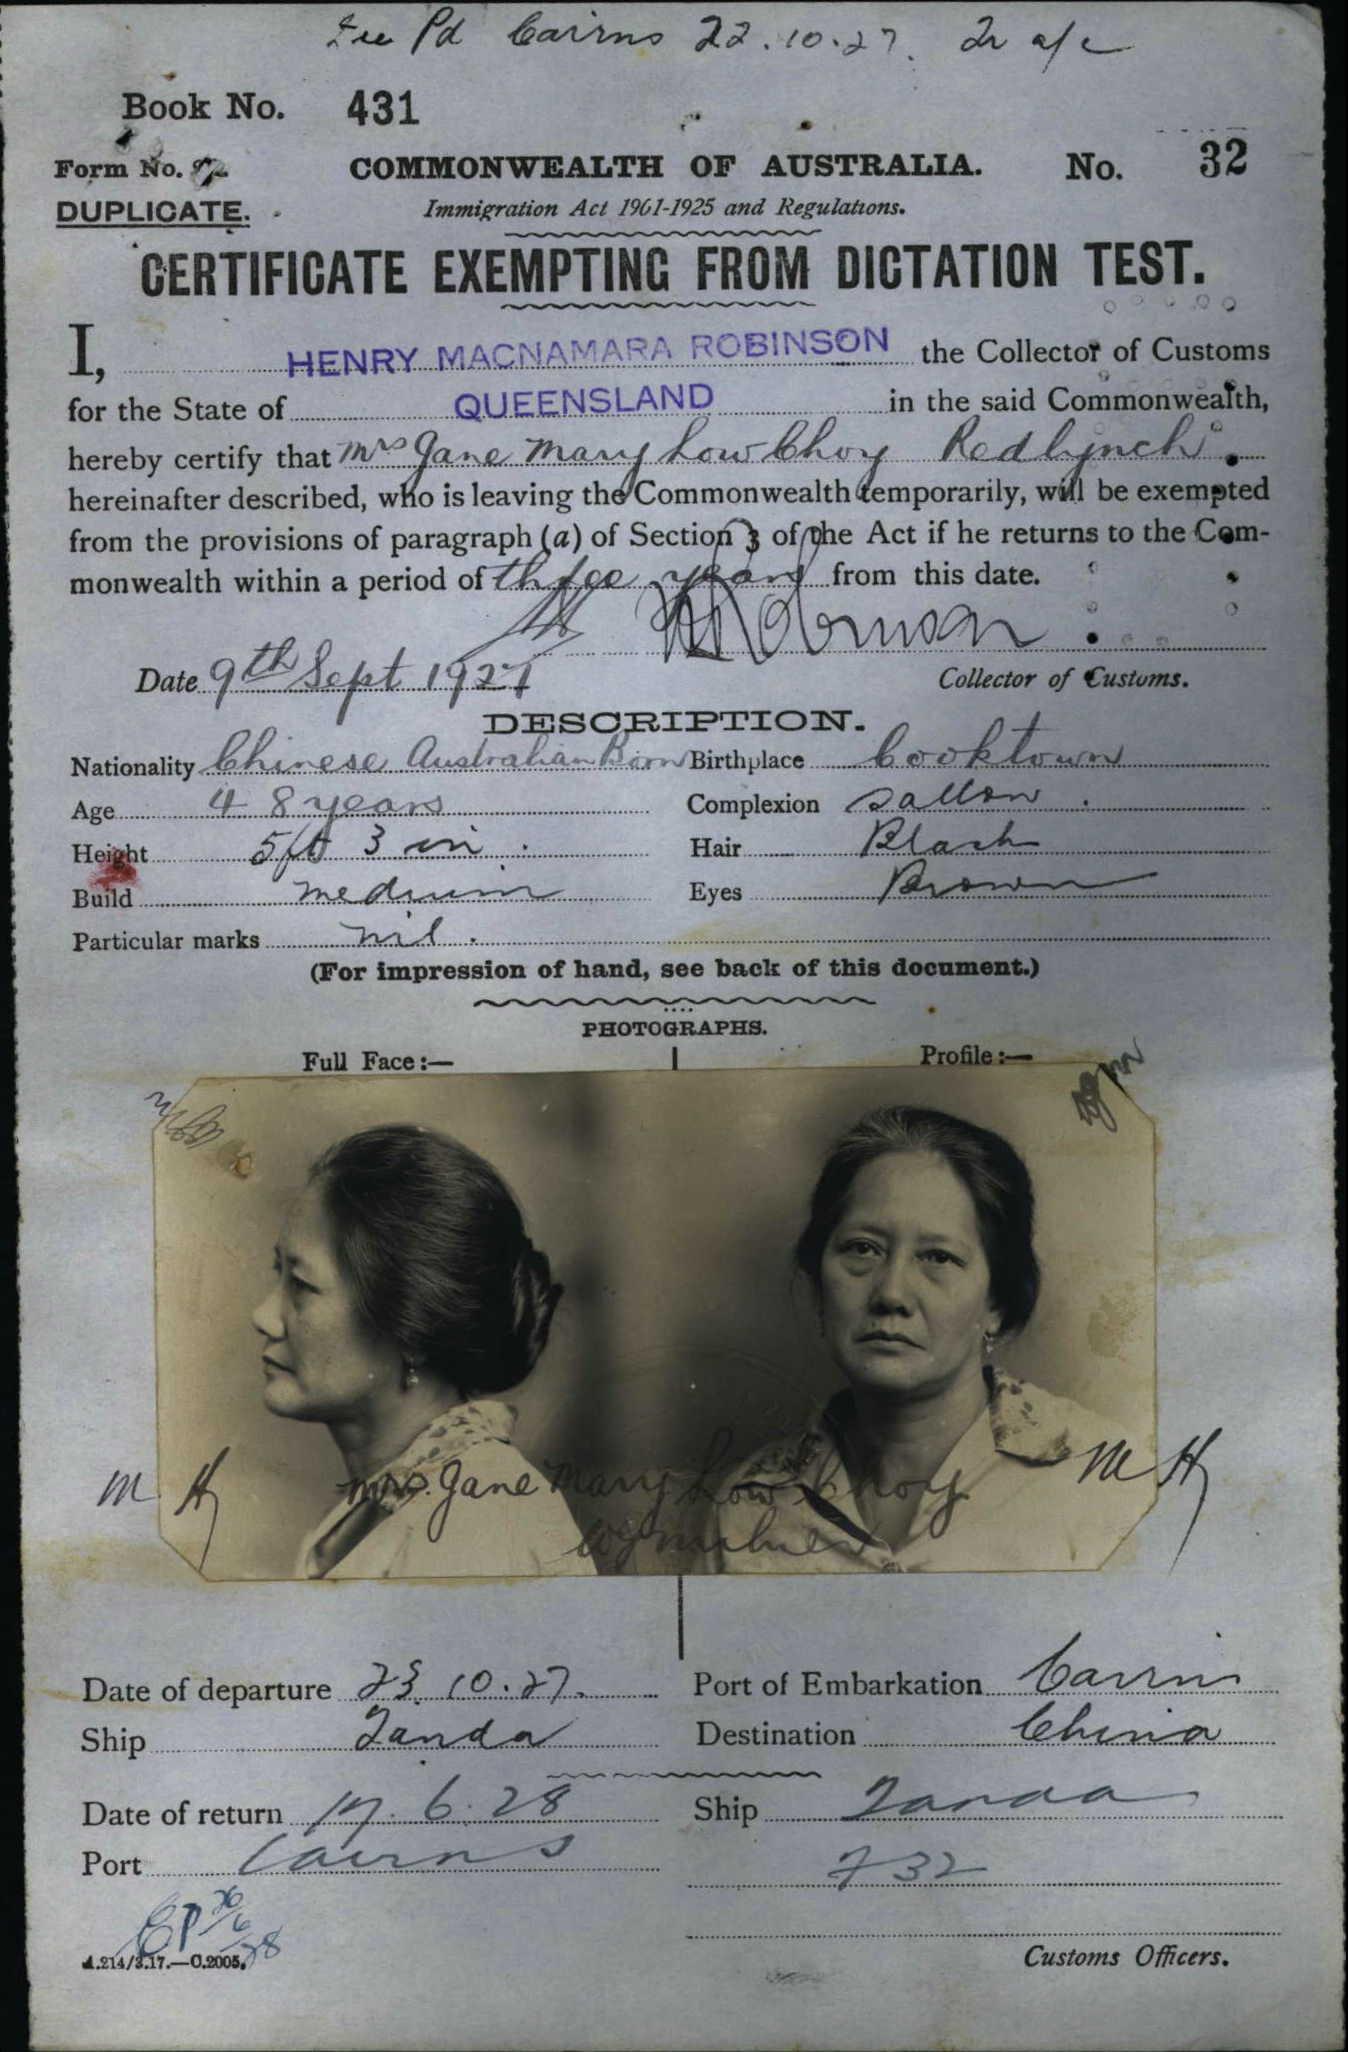 Fee Pd Cairns 22.10.27.
Book No. 431
Form No.
COMMONWEALTH OF AUSTRALIA. No. 32
DUPLICATE.
Immigration Act 1901-1925 and Regulations.
CERTIFICATE EXEMPTING FROM DICTATION TEST.
I, HENRY MACNAMARA ROBINSON the Collector of Customs
for the State of QUEENSLAND in the said Commonwealth,
hereby certify that Mrs Jane Mary Low Choy Redlynch
hereinafter described, who is leaving the Commonwealth temporarily, will be exempted
from the provisions of paragraph (a) of Section 3 of the Act if he returns to the Com-
monwealth within a period of three years from this date.
HM Robinson
Date 9th Sept 1927 Collector of Customs.
DESCRIPTION.
Nationality Chinese Australian Born Birthplace Cooktown
Age 48 years Complexion Sallow.
Height 5 ft 3 in. Hair Black
Build medium Eyes Brown
Particular marks nil.
(For impression of hand, see back of this document.)
PHOTOGRAPHS.
Full Face:— Profile:—
M H M H
Mrs. Jane Mary Low Choy
Date of departure 23.10.27. Port of Embarkation Cairns
Ship Tanda Destination China
Date of return 17.6.28 Ship Tanda
Port Cairns
Customs Officers.
A.214/3.17.—C.2005.